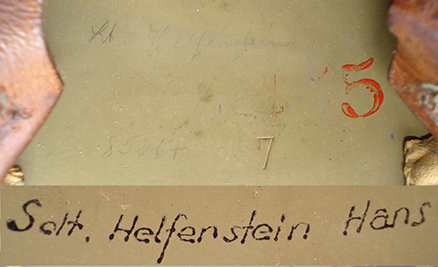 Lt Helfenstein
5
85667
7
Solt. Helfenstein Hans